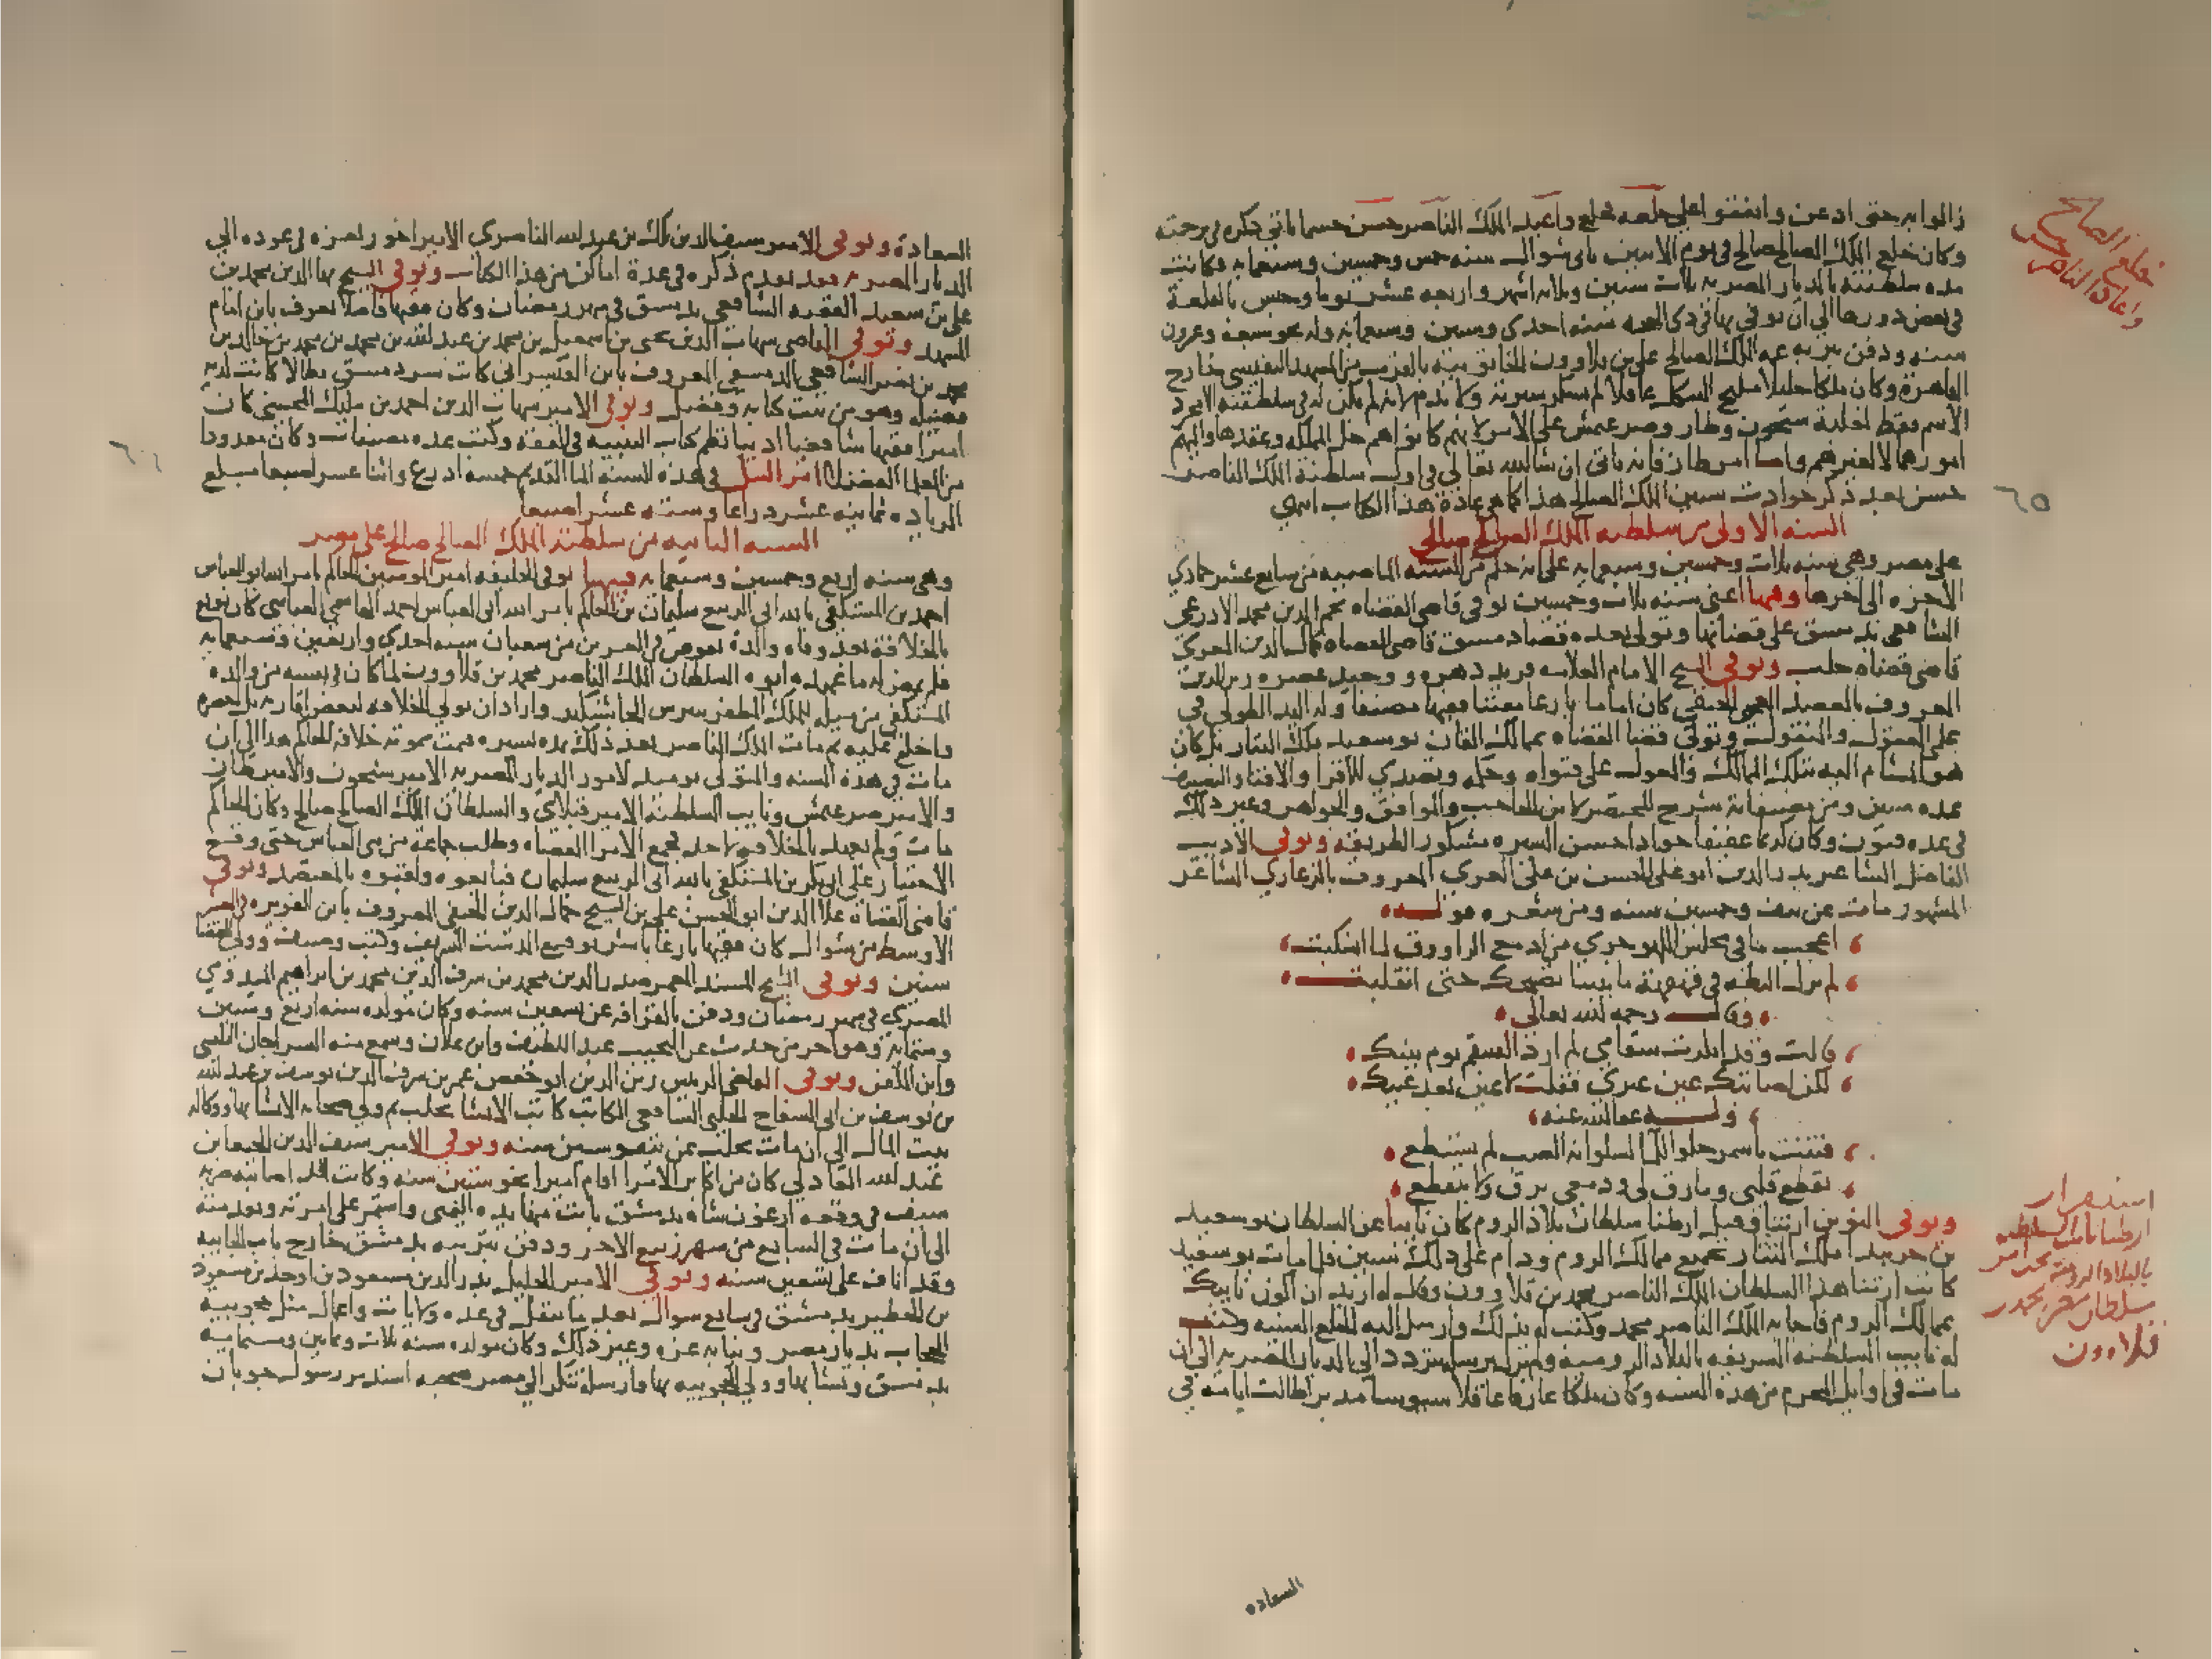 زالوا به حتى اذعن واتفقوا على خلعه فخلع واعيد الملك الناصر حسن حسبما ياتى ذكره فى ترجمته
وكان خلع الملك الصالح صالح فى يوم الاثنين ثانى شوال سنه خمس وخمسين وسبعمايه فكانت
مده سلطنته بالديار المصريه ثلاث سنين وثلاثه اشهر واربعه عشر يوما وحبس بالقلعة
فى بعض دورها الى ان توفى بها فى ذى الحجه سنه احدى وستين وسبعمايه وله نحو سبع وعشرون
سنه ودفن بتربه عمه الملك الصالح على بن قلاوون الخاتونيه بالقرب من المشهد النفيسى خارج
القاهرة وكان ملكا جليلا مليح الشكل عاقلا لم تشكر سيرته ولا تذم لانه لم يكن له فى سلطنته الا مجرد
الاسم فقط لغلبة شيخون وطاز وصرغتمش على الامر لانهم كانوا هم حل المملكه وعقدها واليهم
امورها لا لغيرهم واما امر طاز فانه ياتى ان شا الله تعالى فى اول سلطنة الملك الناصر
حسن بعد ذكر حوادث سنين الملك الصالح هذا كما هى عادة هذا الكتاب انتهى
السنه الاولى من سلطنه الملك الصالح صالح
على مصر وهى سنه ثلاث وخمسين وسبعمايه على انه حكم من السنه الماضيه من سابع عشر جمادى
الاخره الى اخرها وفيها اعنى سنه ثلاث وخمسين توفى قاضى القضاه نجم الدين محمد الاذرعى
الشافعى بدمشق على قضائها وتولى بعده قضا دمشق قاضى القضاه كمال الدين المعرى
قاضى قضاه حلب وتوفى الشيخ الامام العلامه فريد دهره ووحيد عصره زين الدين
المعروف بالعضد العجمى الحنفى كان اماما بارعا مفتنا فقيها مصنفا وله اليد الطولى فى
علم المعقول والمنقول وتولى قضا القضاه بممالك القان بو سعيد ملك التتار بل كان
هو المشار اليه بتلك الممالك والمعول على فتواه وحكمه وتصدى للاقرا والافتا والتصنيف
عده سنين ومن مصنفاته شرح المختصر لابن الحاجب والمواقف والجواهر وغير ذلك
فى عده فنون وكان كريما عفيفا جوادا حسن السيره مشكور الطريقه وتوفى الاديب
الفاضل الشاعر بدر الدين ابو على الحسن بن على العزى المعروف بالزغارى الشاعر
المشهور مات عن نيف وخمسين سنه ومن شعره قوله
اعجب ما فى مجلس اللهو جرى من ادمع الراووق لما انسكبت
لم تزل البطه فى قهقهة ما بيننا تضحك حتى انقلبت
وقال رحمه الله تعالى
قالت وقد انكرت سقامى لم ار ذا السقم يوم بينك
لكن اصابتك عين غيرى فقلت لا عين بعد عينك
وله عفا الله عنه
فتنت باسمر حلو اللما لسلوانه الصب لم يستطع
تقطع قلبى وما رق لى ودمعى يرق ولا ينقطع
وتوفى النوين ارتنا وقيل ارطنا سلطان بلاد الروم كان نايبا عن السلطان بو سعيد
بن خربندا ملك التتار بجميع ممالك الروم ودام على ذلك سنين فلما مات بو سعيد
كاتب ارتنا هذا السلطان الملك الناصر محمد بن قلاوون وقال له اريد ان اكون نايبك
بممالك الروم فاجابه الملك الناصر محمد وكتب له بذلك وارسل اليه الخلع السنيه وكتب
له نايب السلطنه الشريفه بالبلاد الروميه ولم تزل رسله تتردد الى الديار المصريه الى ان
مات فى اوايل المحرم من هذه السنه وكان ملكا عارفا عاقلا سيوسا مدبرا طالت ايامه فى
السعاده
خلع الصالح
صالح
واعادة الناصر حسن
٦٥
استقرار
ارطنا نايب السلطنه
بالبلاد الروميه تحت امر
سلطان مصر محمد بن
قلاوون
السعادة وتوفى الامير سيف الدين بكلمش بن عبد الله الناصرى الامير اخور بعد عوده الى
الديار المصريه بعد تقدم ذكره فى عدة اماكن من هذا الكتاب وتوفى الشيخ بها الدين محمد بن
على بن سعيد الفقيه الشافعى بدمشق فى شهر رمضان وكان فقيها فاضلا يعرف بابن امام
المشهد وتوفى القاضى شهاب الدين يحيى بن اسمعيل بن محمد بن عبد الله بن محمد بن محمد بن خالد بن
محمد بن نصر الشافعى الدمشقى المعروف بابن القيسرانى كاتب سر دمشق بطالا كانت لديه
فضيله وهو من بيت كتابه وفضل وتوفى الامير شهاب الدين احمد بن بيليك المحسنى كان
اميرا فقيها شافعيا اديبا نظم كتاب التنبيه فى الفقه وكتب عده مصنفات وكان معدودا
من العلما الفضلا امر النيل فى هذه السنه الما القديم خمسه اذرع واثنا عشر اصبعا مبلغ
الزياده ثمانيه عشر ذراعا وسته عشر اصبعا
السنه الثانيه من سلطنة الملك الصالح صالح على مصر
وهى سنه اربع وخمسين وسبعمايه فيها توفى الخليفه امير المومنين الحاكم بامر الله ابو العباس
احمد بن المستكفى بالله ابى الربيع سليمان بن الحاكم بامر الله ابى العباس احمد الهاشمى العباسى كان بويع
بالخلافه بعد وفاه والده بقوص فى العشرين من شعبان سنه احدى واربعين وسبعمايه
فلم يمض له ما عهده ابوه السلطان الملك الناصر محمد بن قلاوون لما كان فى نفسه من والده
المستكفى من ميله للملك المظفر بيبرس الجاشنكير واراد ان يولى الخلافه لبعض اقاربه بل احضره
واخلع عليه ثم مات الملك الناصر بعد ذلك بمده يسيره فتمت بموته خلافه الحاكم هذا الى ان
مات فى هذه السنه والمتولى يوميذ لامور الديار المصريه الامير شيخون والامير طاز
والامير صرغتمش ونايب السلطنه الامير قبلاى والسلطان الملك الصالح صالح وكان الحاكم
مات ولم يعهد بالخلافه لاحد فجمع الامرا القضاه وطلب جماعة من بنى العباس حتى وقع
الاختيار على ابى بكر بن المستكفى بالله ابى الربيع سليمان فبايعوه ولقبوه بالمعتضد وتوفى
قاضى القضاة علا الدين ابو الحسن على بن الشيخ جمال الدين الحنفى المعروف بابن الفويره فى العشر
الاوسط من شوال كان فقيها بارعا باشر توقيع الدست الشريف وكتب وصنف وولى القضا
سنين وتوفى الشيخ المسند المعمر صدر الدين محمد بن شرف الدين محمد بن ابراهيم الميدومى
المصرى فى شهر رمضان ودفن بالقرافه عن تسعين سنه وكان مولده سنه اربع وستين
وستمايه وهو اخر من حدث عن النجيب عبد اللطيف وابن علاق وسمع منه السراجان البلقينى
وابن الملقن وتوفى القاضى الرييس زين الدين ابو حفص عمر بن شرف الدين يوسف بن عبد الله
بن يوسف بن ابى السفاح الحلبى الشافعى الكاتب كاتب الانشا بحلب ثم ولى صحابه الانشا بها ووكاله
بيت المال الى ان مات بحلب عن نيف وستين سنه وتوفى الامير سيف الدين الجيبغا بن
عبد الله العادلى كان من اكابر الامرا اقام اميرا نحو ستين سنه وكانت قد اصابته ضربه
سيف فى وقعه ارغون شاه بدمشق بانت منها يده اليمنى واستمر على امرته وتقدمته
الى ان مات فى السابع من شهر ربيع الاخر ودفن بتربته بدمشق خارج باب الجابيه
وقد اناف على تسعين سنه وتوفى الامير الجليل بدر الدين مسعود بن اوحد بن مسعود
بن الخطير بدمشق فى سابع شوال بعد ما تنقل فى عده ولايات واعمال مثل حجوبيه
الحجاب بديار مصر ونيابه غزه وغير ذلك وكان مولده سنه ثلاث وثمانين وستمايه
بدمشق ونشا بها وولى الحجوبيه بها وارسله تنكز الى مصر صحبه اسندمر رسول جوبان
٦٦